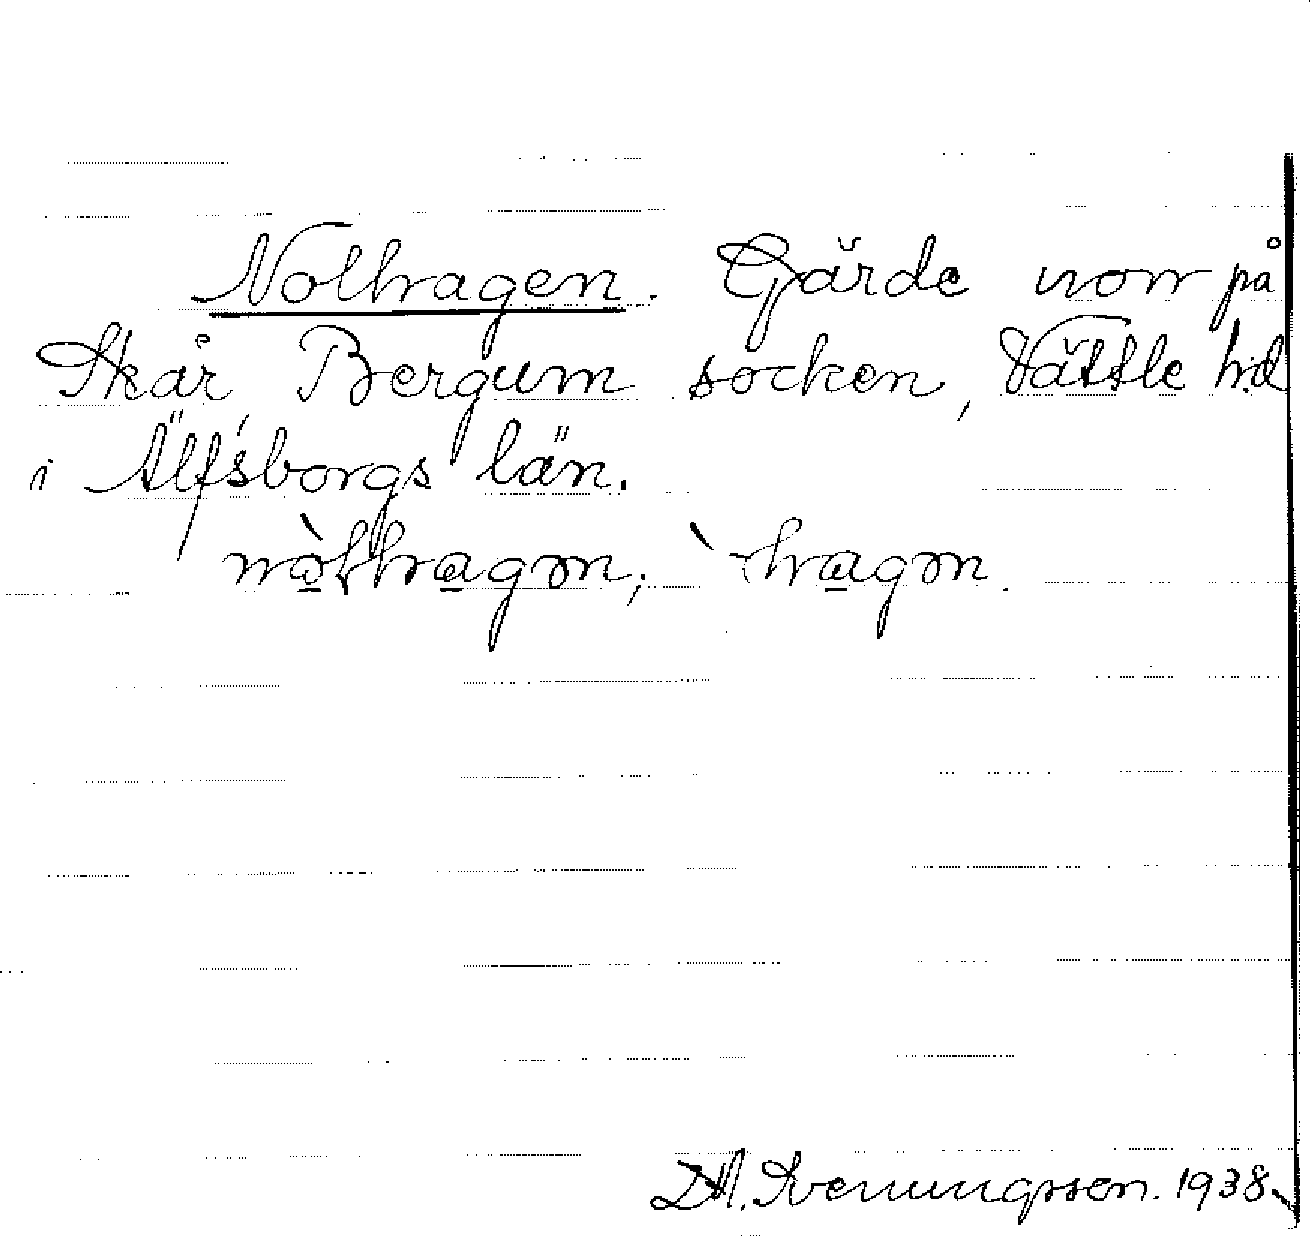 Nolhagen. Gärde norr på
Skår, Bergum socken, Vättle hd
i Älfsborgs län.
nòlhagən, `-hagən.
D.A. Sveningsson. 1938.